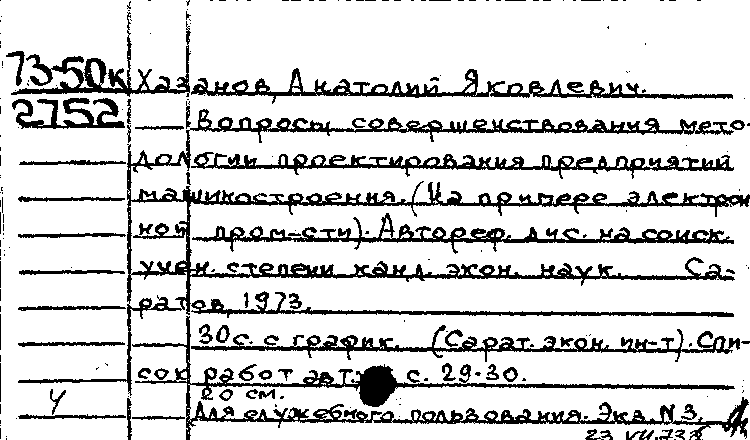 73-50к Хазанов, Анатолий Яковлевич.
2752 Вопросы совершенствования мето-
дологии проектирования предприятий
машиностроения. (На примере электрон-
ной пром-сти). Автореф. дис. на соиск.
учен. степени канд. экон. наук. Са-
ратов, 1973.
30 с. с график. (Сарат. экон. ин-т). Спи-
сок работ авт.: с. 29-30.
20 см.
Для служебного пользования. Экз. N 3.